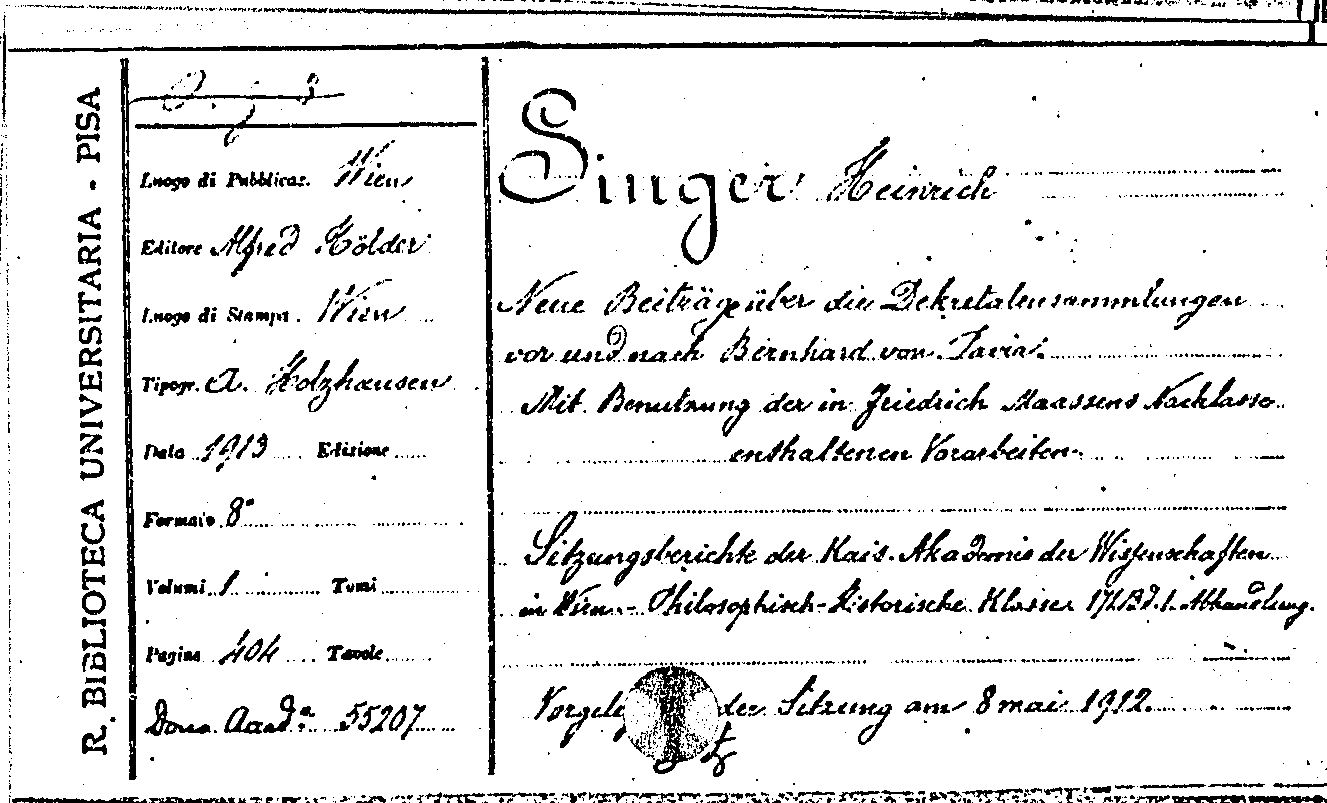 R. BIBLIOTECA UNIVERSITARIA - PISA
Luogo di Pubblicaz. Wien
Editore Alfred Hölder
Luogo di Stampa. Wien
Tipogr. A. Holzhausen
Data 1913 Edizione
Formato 8°
Volumi 1 Tomi
Pagine 404 Tavole
Dono 55207
Singer Heinrich
Neue Beiträge über die Dekretalensammlungen
vor und nach Bernhard von Pavia.
Mit Benutzung der in Friedrich Maassens Nachlasse
enthaltenen Vorarbeiten.
Sitzungsberichte der Kais. Akademie der Wissenschaften
in Wien - Philosophisch-Historische Klasser 171 Bd. 1. Abhandlung.
der Sitzung am 8 mai 1912.